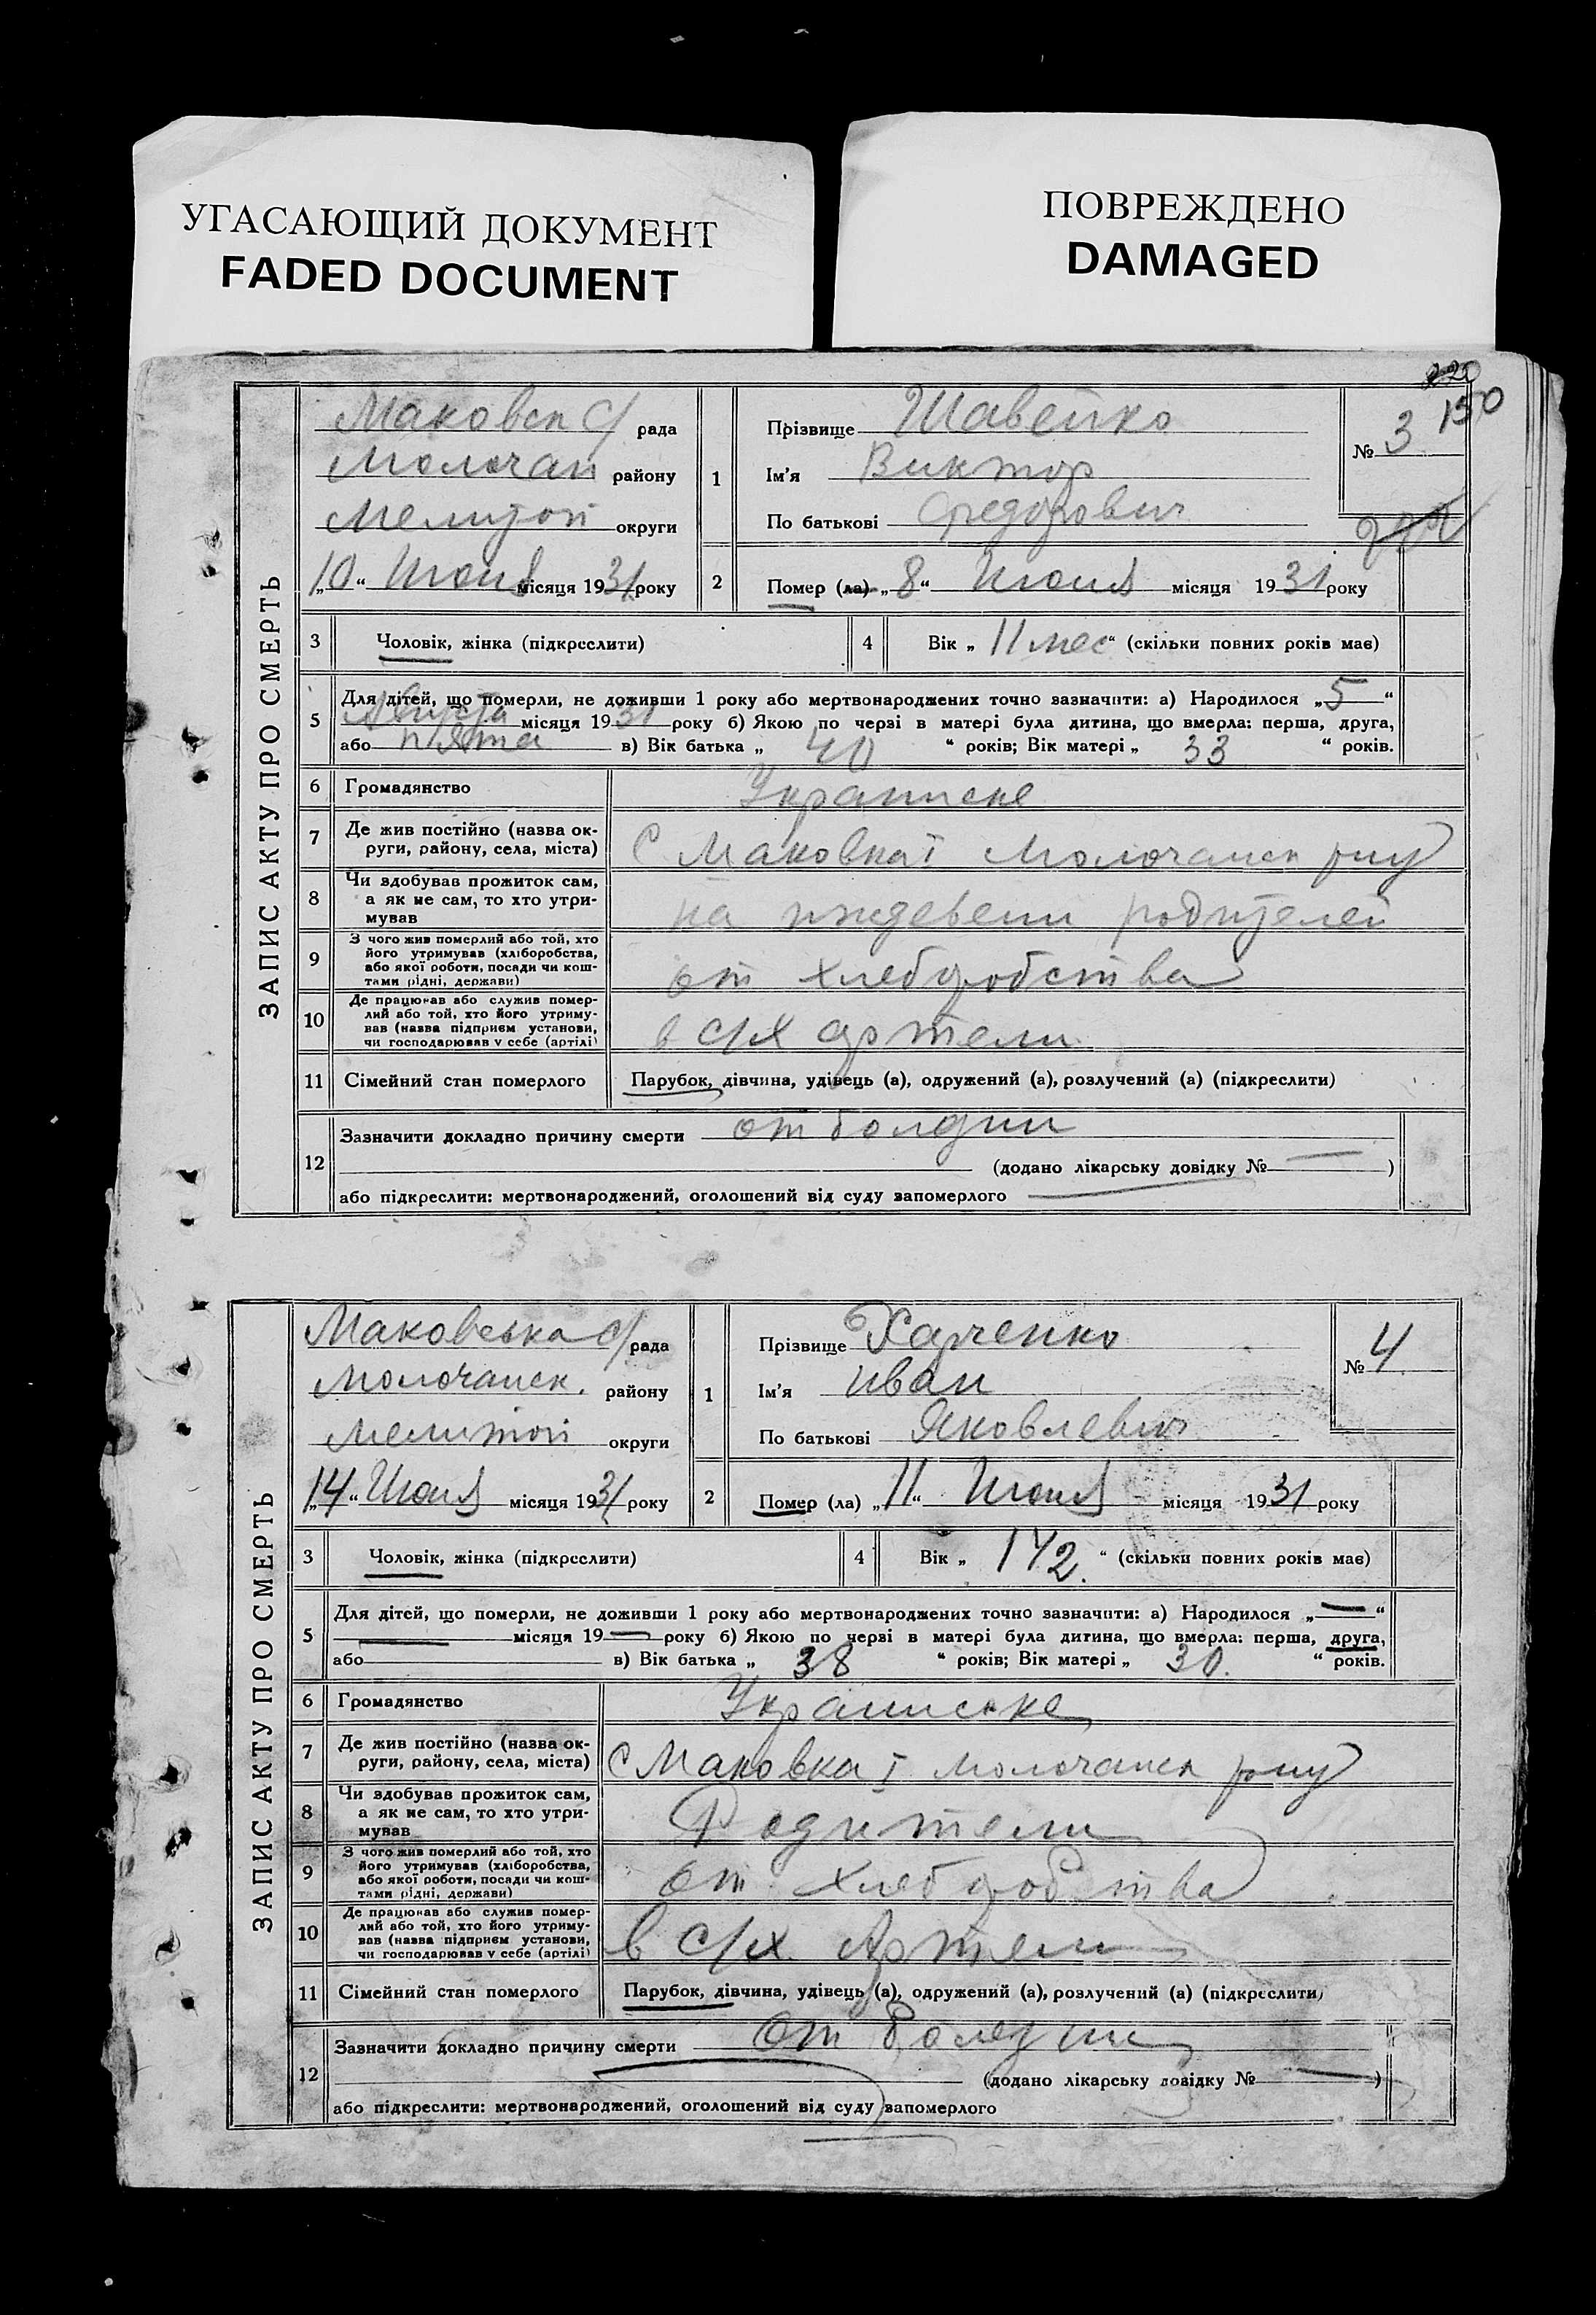 УГАСАЮЩИЙ ДОКУМЕНТ
FADED DOCUMENT
ПОВРЕЖДЕНО
DAMAGED
220
150
ЗАПИС АКТУ ПРО СМЕРТЬ
Маковск С/ рада
Молочан району
Мелитоп округи
„10“ Июля місяця 1931 року
1
Прізвище Шавейко
Ім'я Виктор
По батькові Федорович
№ 3
2
Помер (ла) „8“ Июля місяця 1931 року
3
Чоловік, жінка (підкреслити)
4
Вік „11 мес“ (скільки повних років має)
5
Для дітей, що померли, не доживши 1 року або мертвонароджених точно зазначити: а) Народилося „5“
Августа місяця 1930 року б) Якою по черзі в матері була дитина, що вмерла: перша, друга,
або пята в) Вік батька „40“ років; Вік матері „33“ років.
6
Громадянство
Украинске
7
Де жив постійно (назва ок-
руги, району, села, міста)
С Маковка I Молочанск р-ну
8
Чи здобував прожиток сам,
а як не сам, то хто утри-
мував
на иждевени родителей
9
З чого жив померлий або той, хто
його утримував (хліборобства,
або якої роботи, посади чи кош-
тами рідні, держави)
от хлеборобства
10
Де працював або служив помер-
лий або той, хто його утриму-
вав (назва підприєм установи,
чи господарював у себе (артілі)
в с/х артели
11
Сімейний стан померлого
Парубок, дівчина, удівець (а), одружений (а), розлучений (а) (підкреслити)
12
Зазначити докладно причину смерти от
(додано лікарську довідку № — )
або підкреслити: мертвонароджений, оголошений від суду запомерлого
ЗАПИС АКТУ ПРО СМЕРТЬ
Маковська С/ рада
Молочанск. району
Мелитоп округи
„14“ Июля місяця 1931 року
1
Прізвище Харченко
Ім'я Иван
По батькові Яковлевич
№ 4
2
Помер (ла) „11“ Июля місяця 1931 року
3
Чоловік, жінка (підкреслити)
4
Вік „1 1/2“ (скільки повних років має)
5
Для дітей, що померли, не доживши 1 року або мертвонароджених точно зазначити: а) Народилося „—“
— місяця 19— року б) Якою по черзі в матері була дитина, що вмерла: перша, друга,
або в) Вік батька „38“ років; Вік матері „30.“ років.
6
Громадянство
Украинське
7
Де жив постійно (назва ок-
руги, району, села, міста)
С Маковка I Молочанск р-ну
8
Чи здобував прожиток сам,
а як не сам, то хто утри-
мував
Родители
9
З чого жив померлий або той, хто
його утримував (хліборобства,
або якої роботи, посади чи кош-
тами рідні, держави)
от хлеборобства
10
Де працював або служив помер-
лий або той, хто його утриму-
вав (назва підприєм установи,
чи господарював у себе (артілі)
в с/х Артели
11
Сімейний стан померлого
Парубок, дівчина, удівець (а), одружений (а), розлучений (а) (підкреслити)
12
Зазначити докладно причину смерти от болезни
(додано лікарську довідку № — )
або підкреслити: мертвонароджений, оголошений від суду запомерлого